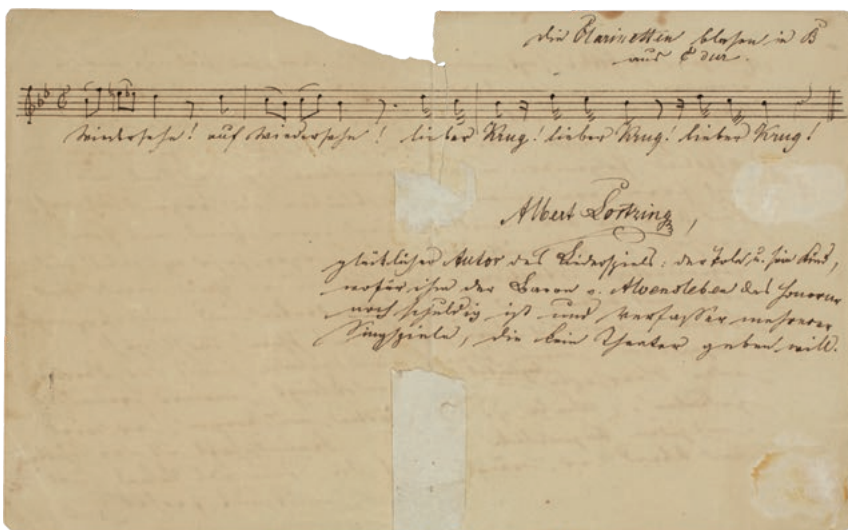 Die Clarinetten blasen in B
aus C dur.
Wiedersehn! auf Wiedersehn! lieber Krug! lieber Krug! lieber Krug!
Albert Lortzing,
glücklicher Autor des Liederspiels: der Pole u. sein Kind,
wofür ihm der Baron v. Alvensleben das Honorar
noch schuldig ist und Verfasser mehrerer
Singspiele, die kein Theater geben will.